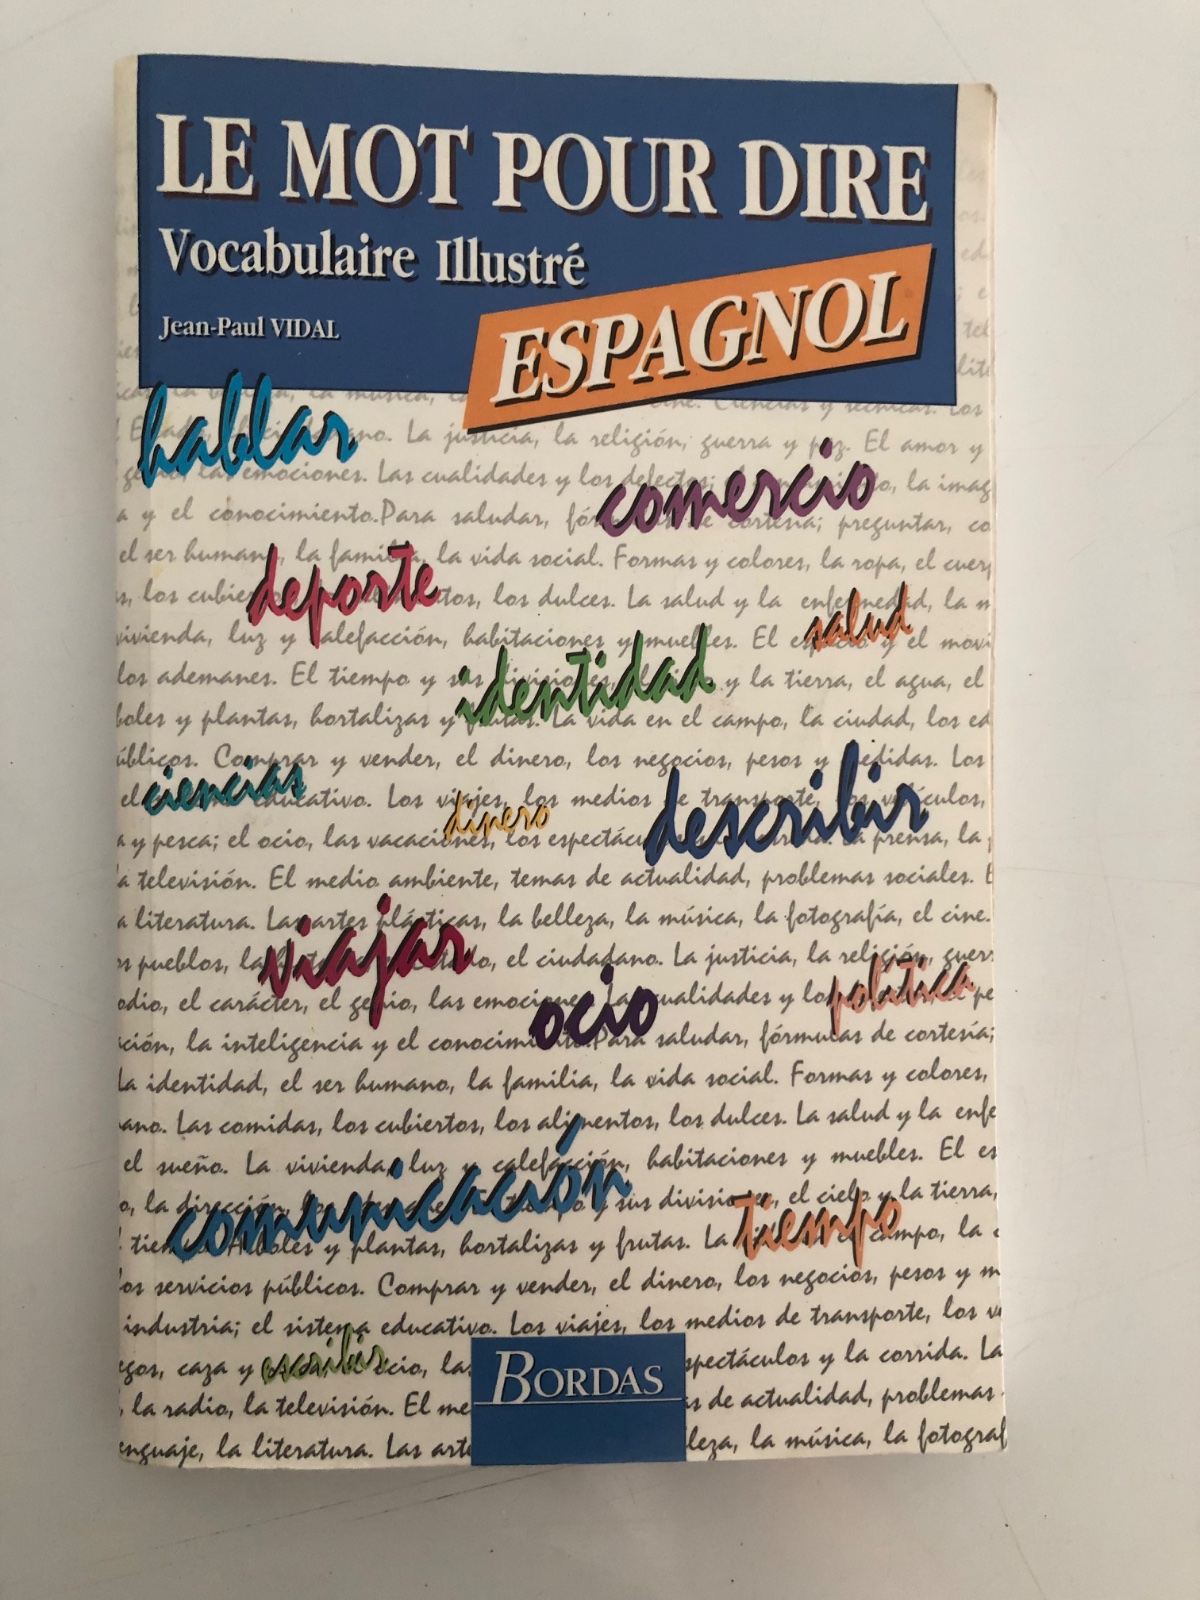 LE MOT POUR DIRE
Vocabulaire Illustré
Jean-Paul VIDAL
ESPAGNOL
hablar
no. La justicia, la religión, guerra y paz. El amor y
emociones. Las cualidades y los defectos; la imag
a y el conocimiento.Para saludar, de cortesía; preguntar, co
comercio
el ser humano, la familia, la vida social. Formas y colores, la ropa, el cuerp
deporte
s, los cubie tos, los dulces. La salud y la enfermedad, la m
salud
vivienda, luz y calefacción, habitaciones y muebles. El espacio y el movi
los ademanes. El tiempo y sus divisiones, el cielo y la tierra, el agua, el
identidad
boles y plantas, hortalizas y frutas. La vida en el campo, la ciudad, los ed
úblicos. Comprar y vender, el dinero, los negocios, pesos y medidas. Los
ciencias
el educativo. Los viajes, los medios de transporte, los vehículos,
dinero
describir
a y pesca; el ocio, las vacaciones, los espectácu La prensa, la
a televisión. El medio ambiente, temas de actualidad, problemas sociales. E
a literatura. Las artes plásticas, la belleza, la música, la fotografía, el cine.
viajar
os pueblos, la do, el ciudadano. La justicia, la religión, guer
odio, el carácter, el genio, las emociones. Las cualidades y los pe
ocio
política
ción, la inteligencia y el conocimiento.Para saludar, fórmulas de cortesía;
la identidad, el ser humano, la familia, la vida social. Formas y colores,
ano. Las comidas, los cubiertos, los alimentos, los dulces. La salud y la enfe
el sueño. La vivienda, luz y calefacción, habitaciones y muebles. El es
o, la dirección, y sus divisiones, el cielo y la tierra,
comunicación
tiempo
tiem Arboles y plantas, hortalizas y frutas. La campo, la c
os servicios públicos. Comprar y vender, el dinero, los negocios, pesos y m
industria; el sistema educativo. Los viajes, los medios de transporte, los v
escribir
egos, caza y pesca; el ocio, las spectáculos y la corrida. La
, la radio, la televisión. El me s de actualidad, problemas
enguaje, la literatura. Las arte leza, la música, la fotograf
BORDAS